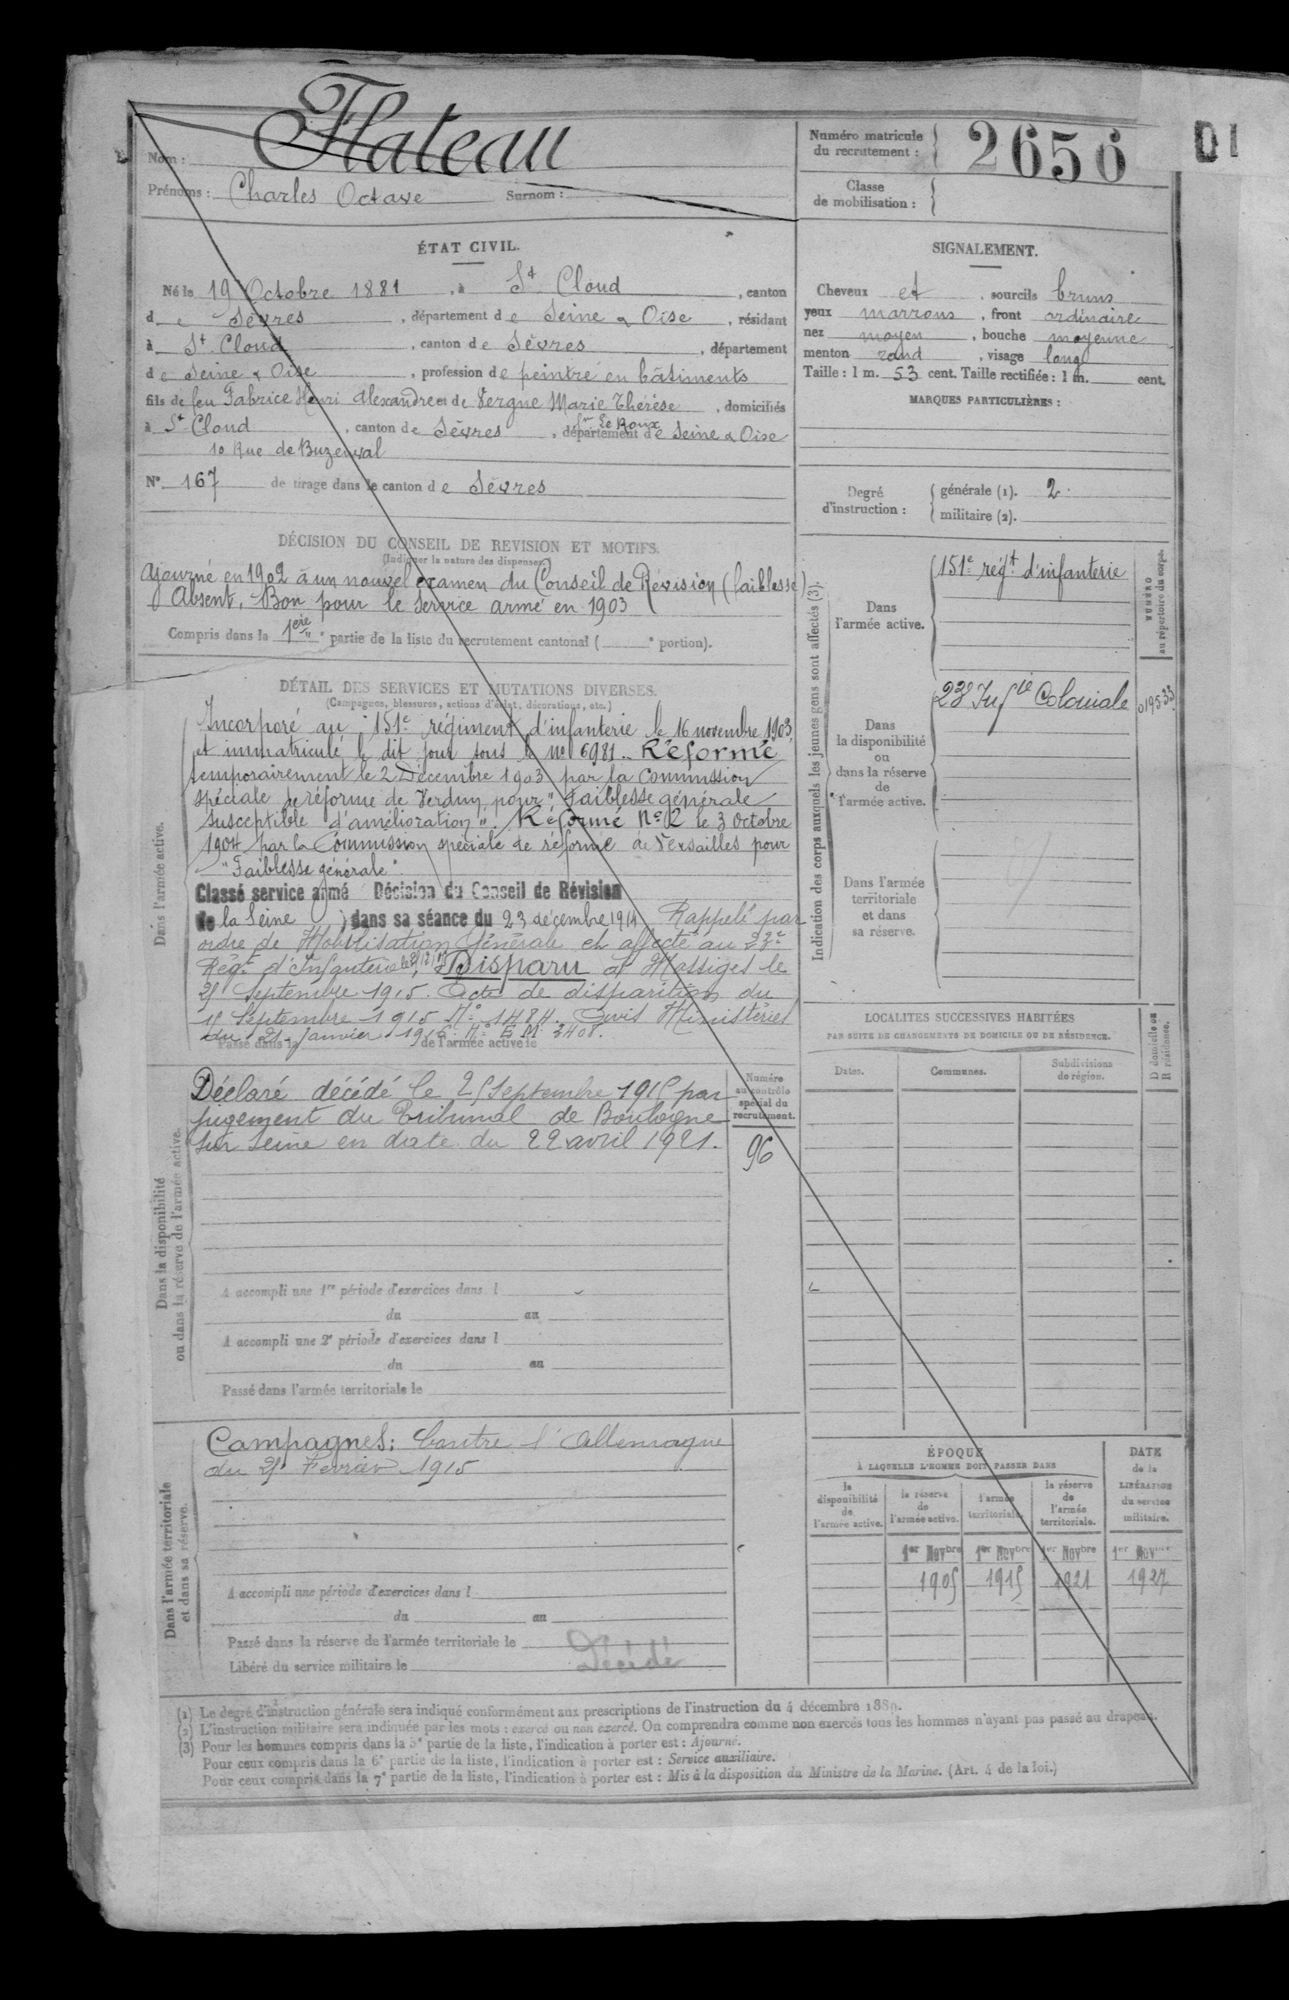 Nom : Flateau
Prénoms : Charles Octave Surnom :
Numéro matricule du recrutement : 2656
Classe de mobilisation :
ÉTAT CIVIL.
Né le 19 Octobre 1881, à St Cloud, canton
de Sèvres, département de Seine & Oise, résidant
à St. Cloud, canton de Sèvres, département
de Seine & Oise, profession de peintre en bâtiments
fils de feu Fabrice Henri Alexandre et de Vergne Marie Thérèse, domiciliés
à St Cloud, canton de Sèvres, département de Seine & Oise
Le Roux
10 Rue de Buzenval
N° 167 de tirage dans le canton de Sèvres
SIGNALEMENT.
Cheveux et, sourcils bruns
yeux marrons, front ordinaire
nez moyen, bouche moyenne
menton rond, visage long
Taille : 1 m. 53 cent. Taille rectifiée : 1 m. cent.
MARQUES PARTICULIÈRES :
Degré d'instruction : générale (1). 2
militaire (2).
DÉCISION DU CONSEIL DE REVISION ET MOTIFS.
(Indiquer la nature des dispenses.)
Ajourné en 1902 à un nouvel examen du Conseil de Révision (faiblesse)
Absent. Bon pour le service armé en 1903
Compris dans la 1ère partie de la liste du recrutement cantonal ( e portion).
Indication des corps auxquels les jeunes gens sont affectés (3).
Dans l'armée active.
151e régt d'infanterie
NUMÉRO au répertoire du corps.
Dans la disponibilité ou dans la réserve de l'armée active.
23e Infie Coloniale
019533
Dans l'armée territoriale et dans sa réserve.
DÉTAIL DES SERVICES ET MUTATIONS DIVERSES.
(Campagnes, blessures, actions d'éclat, décorations, etc.)
Dans l'armée active.
Incorporé au 151e régiment d'infanterie le 16 novembre 1903,
et immatriculé le dit jour sous le no 6981. Réformé
temporairement le 2 Décembre 1903 par la Commission
spéciale de réforme de Verdun pour "Faiblesse générale
susceptible d'amélioration". Réformé No 2 le 3 Octobre
1904 par la Commission spéciale de réforme de Versailles pour
"Faiblesse générale".
Classé service armé Décision du Conseil de Révision
de la Seine dans sa séance du 23 décembre 1914 Rappelé par
ordre de Mobilisation Générale et affecté au 23e
Régt d'Infanterie Disparu à Massiges le
25 Septembre 1915. Acte de disparition du
Septembre 1915 No 1484. Avis Ministériel
du 21 Janvier 1916 No E M 3408.
Passé dans la de l'armée active le
Dans la disponibilité ou dans la réserve de l'armée active.
Déclaré décédé le 25 Septembre 1915 par
jugement du Tribunal de Boulogne
sur Seine en date du 22 avril 1921.
Numéro au contrôle spécial du recrutement.
96
A accompli une 1re période d'exercices dans l
du au
A accompli une 2e période d'exercices dans l
du au
Passé dans l'armée territoriale le
LOCALITÉS SUCCESSIVES HABITÉES
PAR SUITE DE CHANGEMENTS DE DOMICILE OU DE RÉSIDENCE.
Dates. Communes. Subdivisions de région. D domicile ou R résidence.
Dans l'armée territoriale et dans sa réserve.
Campagnes : Contre l'Allemagne
du 25 Février 1915
A accompli une période d'exercices dans l
du au
Passé dans la réserve de l'armée territoriale le
Libéré du service militaire le
Décédé
ÉPOQUE
À LAQUELLE L'HOMME DOIT PASSER DANS
la disponibilité de l'armée active. la réserve de l'armée active. l'armée territoriale. la réserve de l'armée territoriale.
DATE de la LIBÉRATION du service militaire.
1er Novbre 1er Novbre 1er Novbre 1er Novbre
1905 1915 1921 1927
(1) Le degré d'instruction générale sera indiqué conformément aux prescriptions de l'instruction du 4 décembre 1889.
(2) L'instruction militaire sera indiquée par les mots : exercé ou non exercé. On comprendra comme non exercés tous les hommes n'ayant pas passé au drapeau.
(3) Pour les hommes compris dans la 5e partie de la liste, l'indication à porter est : Ajourné.
Pour ceux compris dans la 6e partie de la liste, l'indication à porter est : Service auxiliaire.
Pour ceux compris dans la 7e partie de la liste, l'indication à porter est : Mis à la disposition du Ministre de la Marine. (Art. 4 de la loi.)